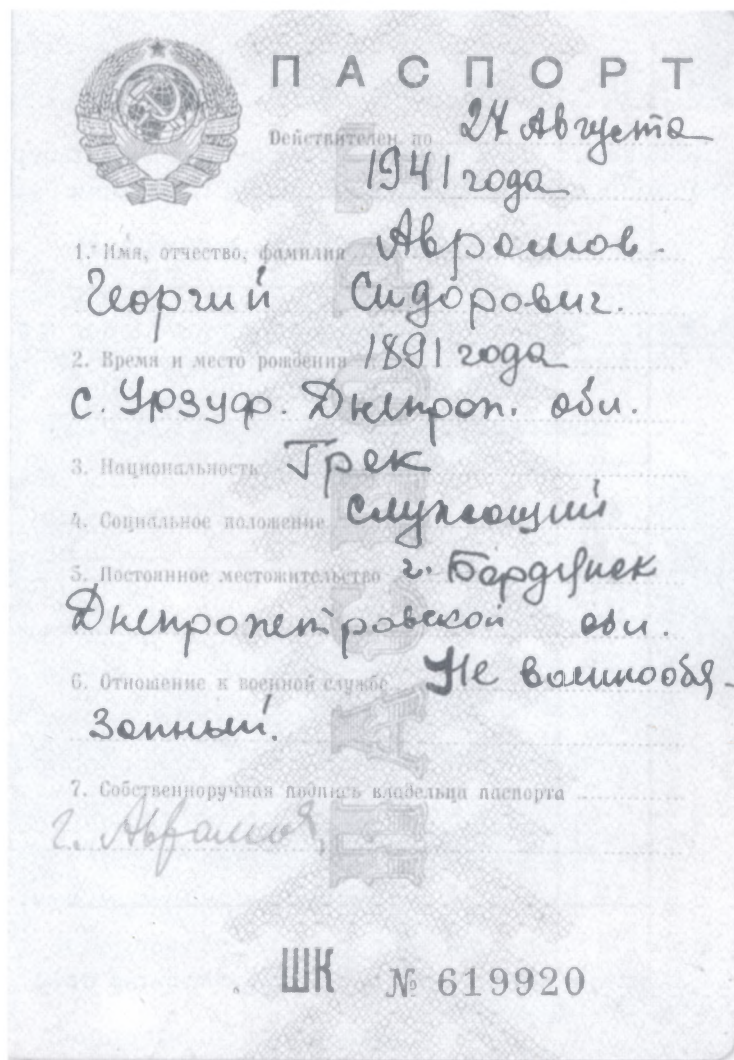 ПАСПОРТ
Действителен по 24 Августа
1941 года
1. Имя, отчество, фамилия Аврамов
Георгий Сидорович.
2. Время и место рождения 1891 года
с. Урзуф. Днепроп. обл.
3. Национальность Грек
4. Социальное положение служащий
5. Постоянное местожительство г. Бердянск
Днепропетровской обл.
6. Отношение к военной службе Не воиннообя-
занный.
7. Собственноручная подпись владельца паспорта
Г. Аврамов
ШК № 619920
ПАСПОРТ